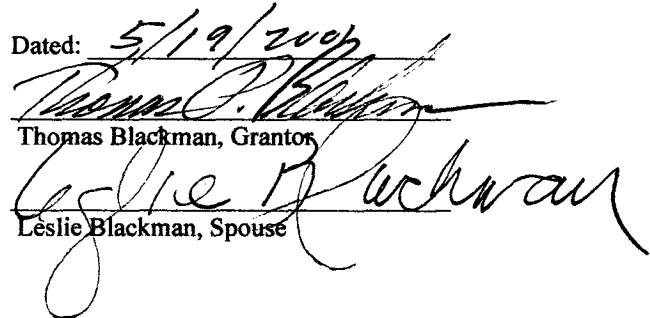 Dated: 5/19/
Thomas P. Blackman
Thomas Blackman, Grantor
Leslie Blackman
Leslie Blackman, Spouse